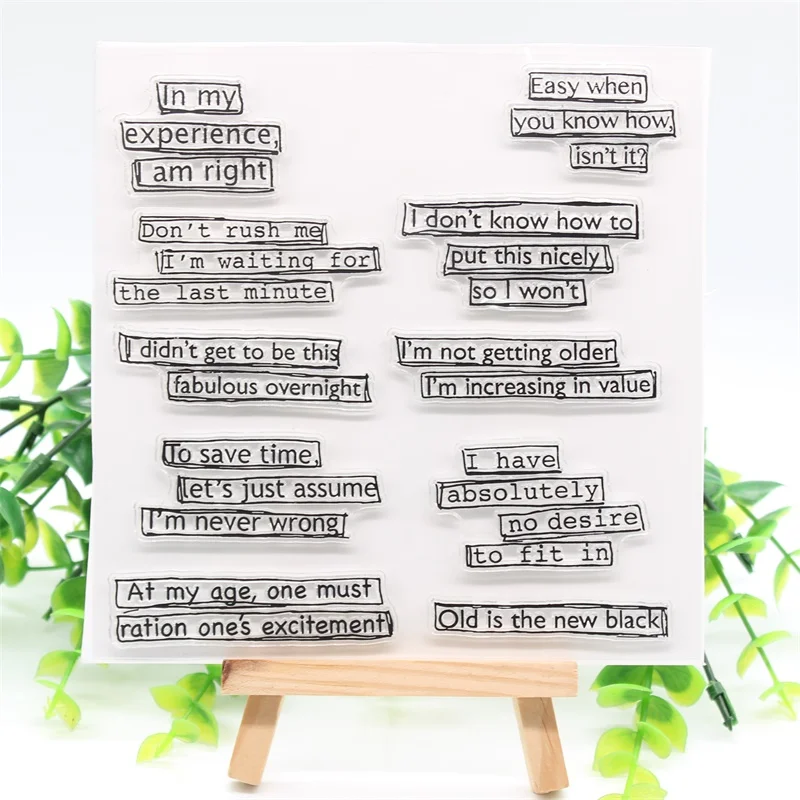 In my
experience,
I am right
Easy when
you know how,
isn't it?
Don't rush me
I'm waiting for
the last minute
I don't know how to
put this nicely
so I won't
I didn't get to be this
fabulous overnight
I'm not getting older
I'm increasing in value
To save time,
let's just assume
I'm never wrong
I have
absolutely
no desire
to fit in
At my age, one must
ration one's excitement
Old is the new black